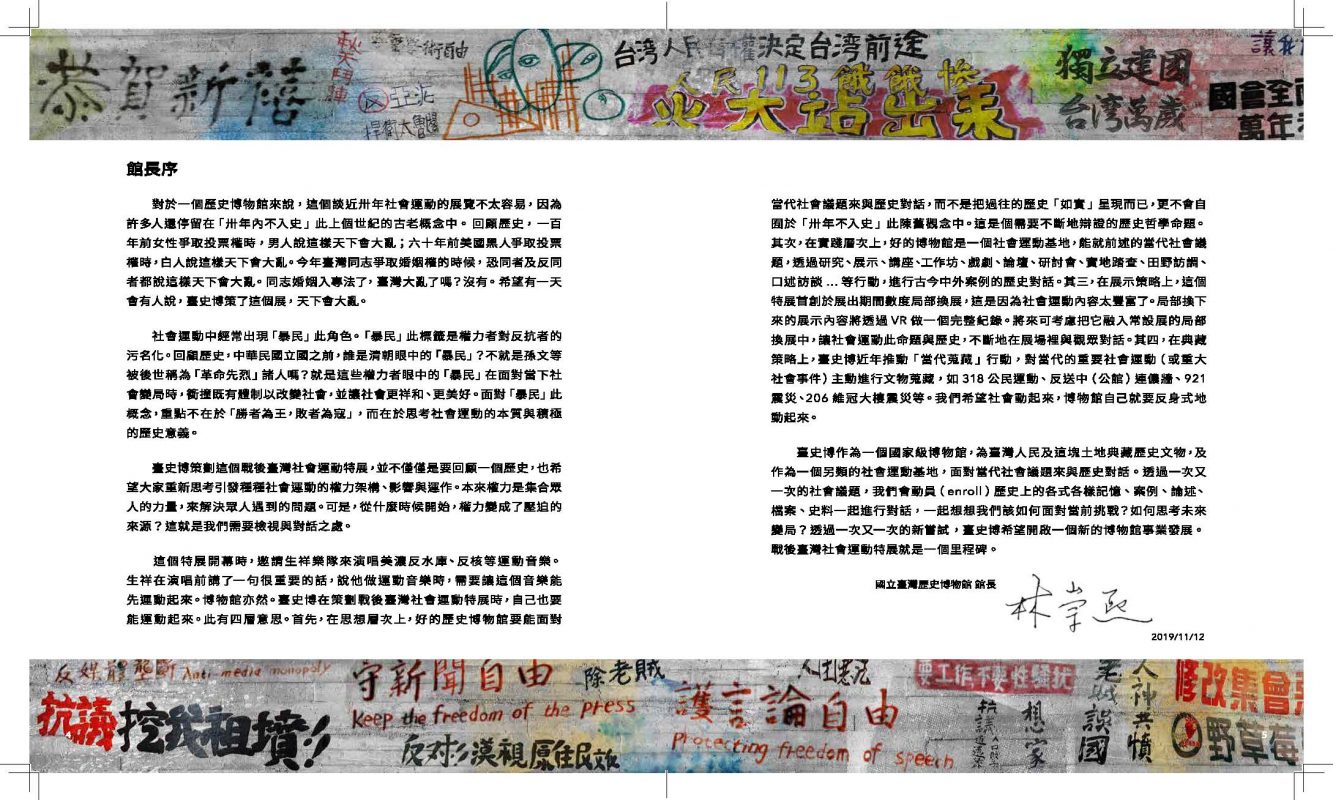 恭賀新禧
反亞泥
捍衛太魯閣
台湾人民有權決定台湾前途
人民113餓餓慘
火大站出來
獨立建國
台湾萬歲
國會全面
萬年
館長序
對於一個歷史博物館來說，這個談近卅年社會運動的展覽不太容易，因為
許多人還停留在「卅年內不入史」此上個世紀的古老概念中。回顧歷史，一百
年前女性爭取投票權時，男人說這樣天下會大亂；六十年前美國黑人爭取投票
權時，白人說這樣天下會大亂。今年臺灣同志爭取婚姻權的時候，恐同者及反同
者都說這樣天下會大亂。同志婚姻入專法了，臺灣大亂了嗎？沒有。希望有一天
會有人說，臺史博策了這個展，天下會大亂。
社會運動中經常出現「暴民」此角色。「暴民」此標籤是權力者對反抗者的
污名化。回顧歷史，中華民國立國之前，誰是清朝眼中的「暴民」？不就是孫文等
被後世稱為「革命先烈」諸人嗎？就是這些權力者眼中的「暴民」在面對當下社
會變局時，衝撞既有體制以改變社會，並讓社會更祥和、更美好。面對「暴民」此
概念，重點不在於「勝者為王，敗者為寇」，而在於思考社會運動的本質與積極
的歷史意義。
臺史博策劃這個戰後臺灣社會運動特展，並不僅僅是要回顧一個歷史，也希
望大家重新思考引發種種社會運動的權力架構、影響與運作。本來權力是集合眾
人的力量，來解決眾人遇到的問題。可是，從什麼時候開始，權力變成了壓迫的
來源？這就是我們需要檢視與對話之處。
這個特展開幕時，邀請生祥樂隊來演唱美濃反水庫、反核等運動音樂。
生祥在演唱前講了一句很重要的話，說他做運動音樂時，需要讓這個音樂能
先運動起來。博物館亦然。臺史博在策劃戰後臺灣社會運動特展時，自己也要
能運動起來。此有四層意思。首先，在思想層次上，好的歷史博物館要能面對
當代社會議題來與歷史對話，而不是把過往的歷史「如實」呈現而已，更不會自
囿於「卅年不入史」此陳舊觀念中。這是個需要不斷地辯證的歷史哲學命題。
其次，在實踐層次上，好的博物館是一個社會運動基地，能就前述的當代社會議
題，透過研究、展示、講座、工作坊、戲劇、論壇、研討會、實地踏查、田野訪調、
口述訪談 ... 等行動，進行古今中外案例的歷史對話。其三，在展示策略上，這個
特展首創於展出期間數度局部換展，這是因為社會運動內容太豐富了。局部換下
來的展示內容將透過 VR 做一個完整紀錄。將來可考慮把它融入常設展的局部
換展中，讓社會運動此命題與歷史，不斷地在展場裡與觀眾對話。其四，在典藏
策略上，臺史博近年推動「當代蒐藏」行動，對當代的重要社會運動（或重大
社會事件）主動進行文物蒐藏，如 318 公民運動、反送中（公館）連儂牆、921
震災、206 維冠大樓震災等。我們希望社會動起來，博物館自己就要反身式地
動起來。
臺史博作為一個國家級博物館，為臺灣人民及這塊土地典藏歷史文物，及
作為一個另類的社會運動基地，面對當代社會議題來與歷史對話。透過一次又
一次的社會議題，我們會動員（enroll）歷史上的各式各樣記憶、案例、論述、
檔案、史料一起進行對話，一起想想我們該如何面對當前挑戰？如何思考未來
變局？透過一次又一次的新嘗試，臺史博希望開啟一個新的博物館事業發展。
戰後臺灣社會運動特展就是一個里程碑。
國立臺灣歷史博物館 館長
林崇熙
2019/11/12
反媒體壟斷 Anti media monopoly
抗議挖我祖墳!!
守新聞自由
Keep the freedom of the press
反对漠視原住民文化
除老賊
護言論自由
Protecting freedom of speech
要工作不要性騷扰
想家
老賊誤國
人神共憤
修改集會
野草莓